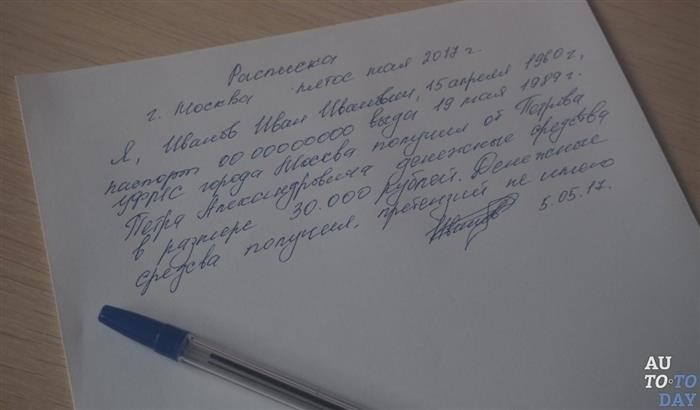 Расписка
г. Москва мая 2017 г.
Я, Иванов Иван Иванович, 15 апреля 1960 г,
паспорт 00 00000000 выда 19 мая 1989 г.
УФМС города Москва получил от Петрова
Петра Александровича денежные средства
в размере 30.000 рублей. Денежные
средсва получил, претензий не имею
5.05.17.
AU
TO TO
DAY